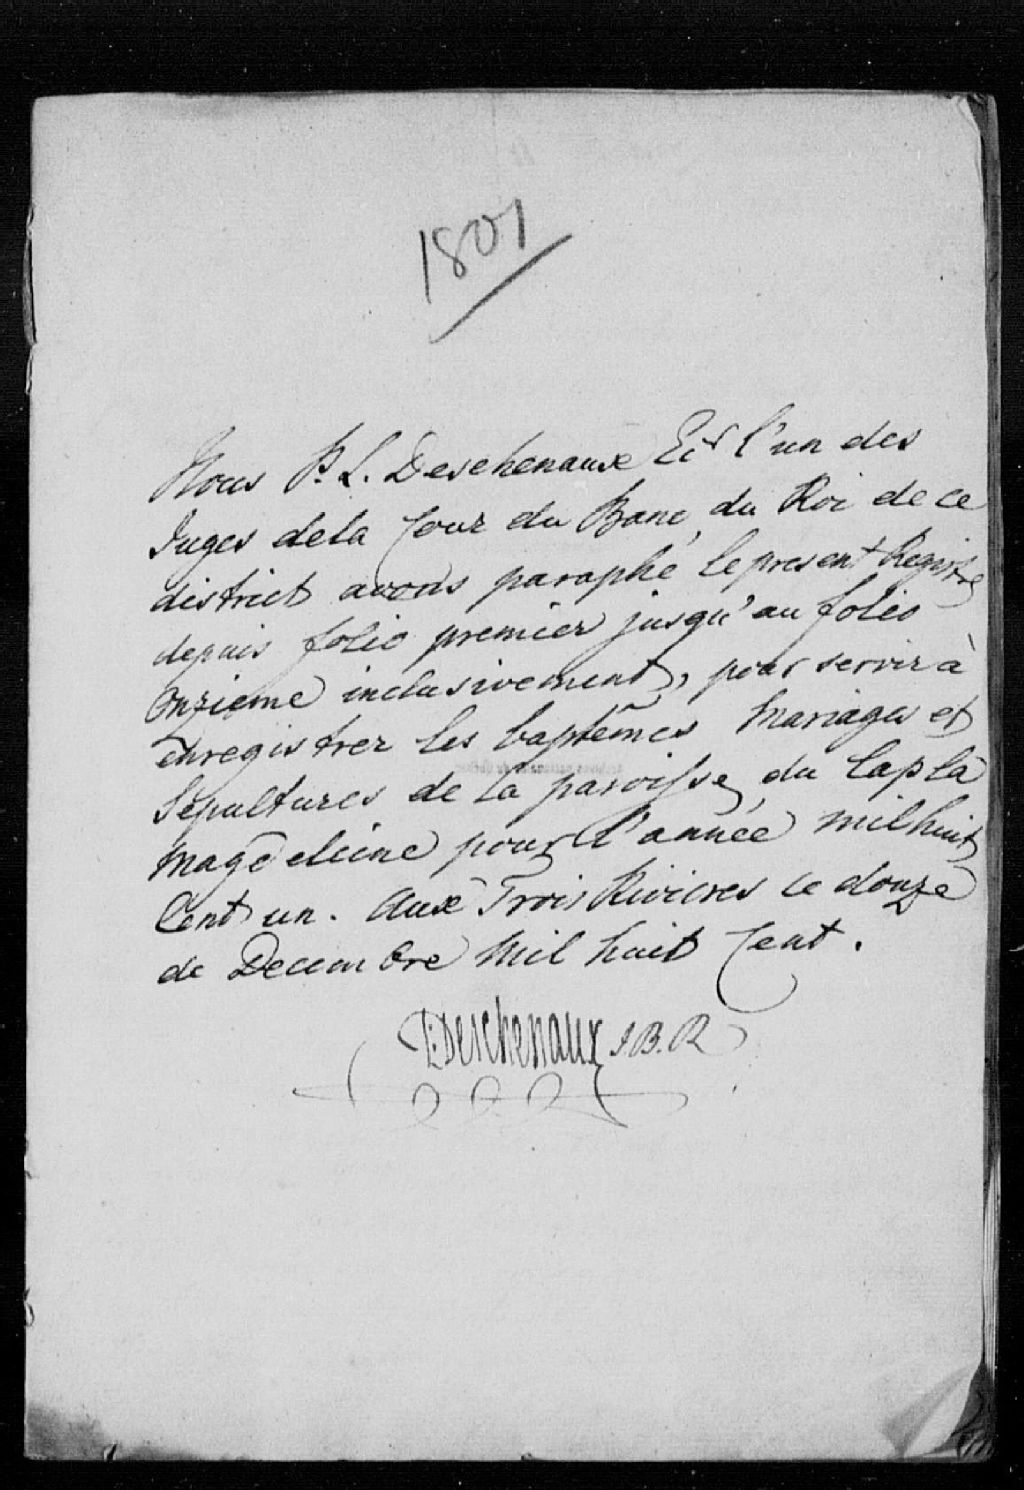 1801
Nous P. L. Deschenaux Ecr l'un des
Juges dela Cour du Banc du Roi de ce
district avons paraphé le present Registre
depuis folio premier jusqu'au folio
Onzieme inclusivement, pour servir à
enregistrer les baptêmes Mariages et
Sepultures de la paroisse du Cap la
Magdeleine pour l'année mil huit
Cent un. Aux Trois Rivieres ce douze
de Decembre Mil huit Cent.
P: L: Deschenaux J. B. R